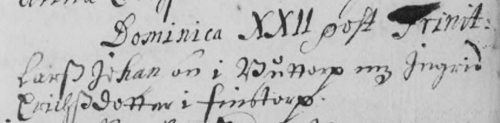 Dominica XXII post Trinit:
Larß Johan on i Puttorp mz Ingrid
Erichßdotter i Finstorp.